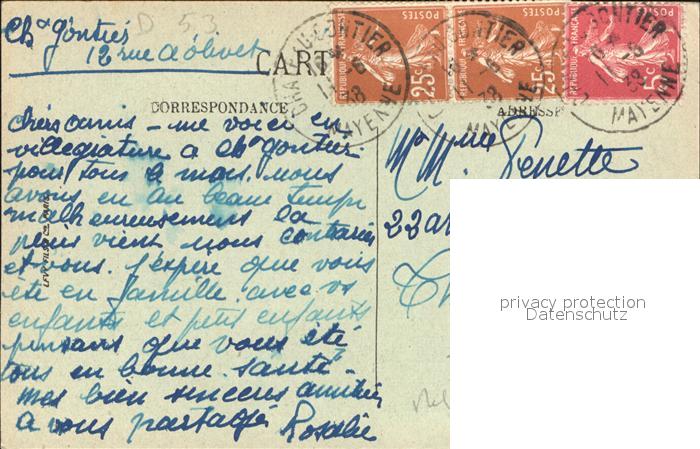 Chau Gontier
D 53
12 rue d'olivet
CART
CORRESPONDANCE
ADRESSE
POSTES
REPUBLIQUE FRANÇAISE
25c
POSTES
REPUBLIQUE FRANÇAISE
25c
CHATEAU-GONTIER
MAYENNE
chers amis - me voici en
villegiature a Chau gontier
pour tous le mois. nous
avons eu un beau temps
malheureusement la
pluie vient nous contrarier
et vous. J'espère que vous
été en famille. avec vs
enfants et petit enfants
pensans que vous été
tous en bonne santé.
mes bien sinceres amitiés
a vous partagés Rosalie
Mr Mme Penette
22
privacy protection
Datenschutz